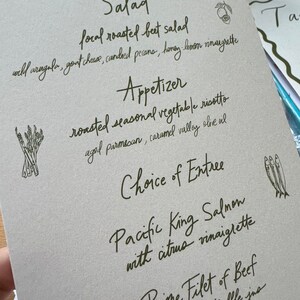 Salad
local roasted beet salad
wild arugula, goat cheese, candied pecans, honey lemon vinaigrette
Appetizer
roasted seasonal vegetable risotto
aged parmesan, caramel valley olive oil
Choice of Entree
Pacific King Salmon
with citrus vinaigrette
Prime Filet of Beef